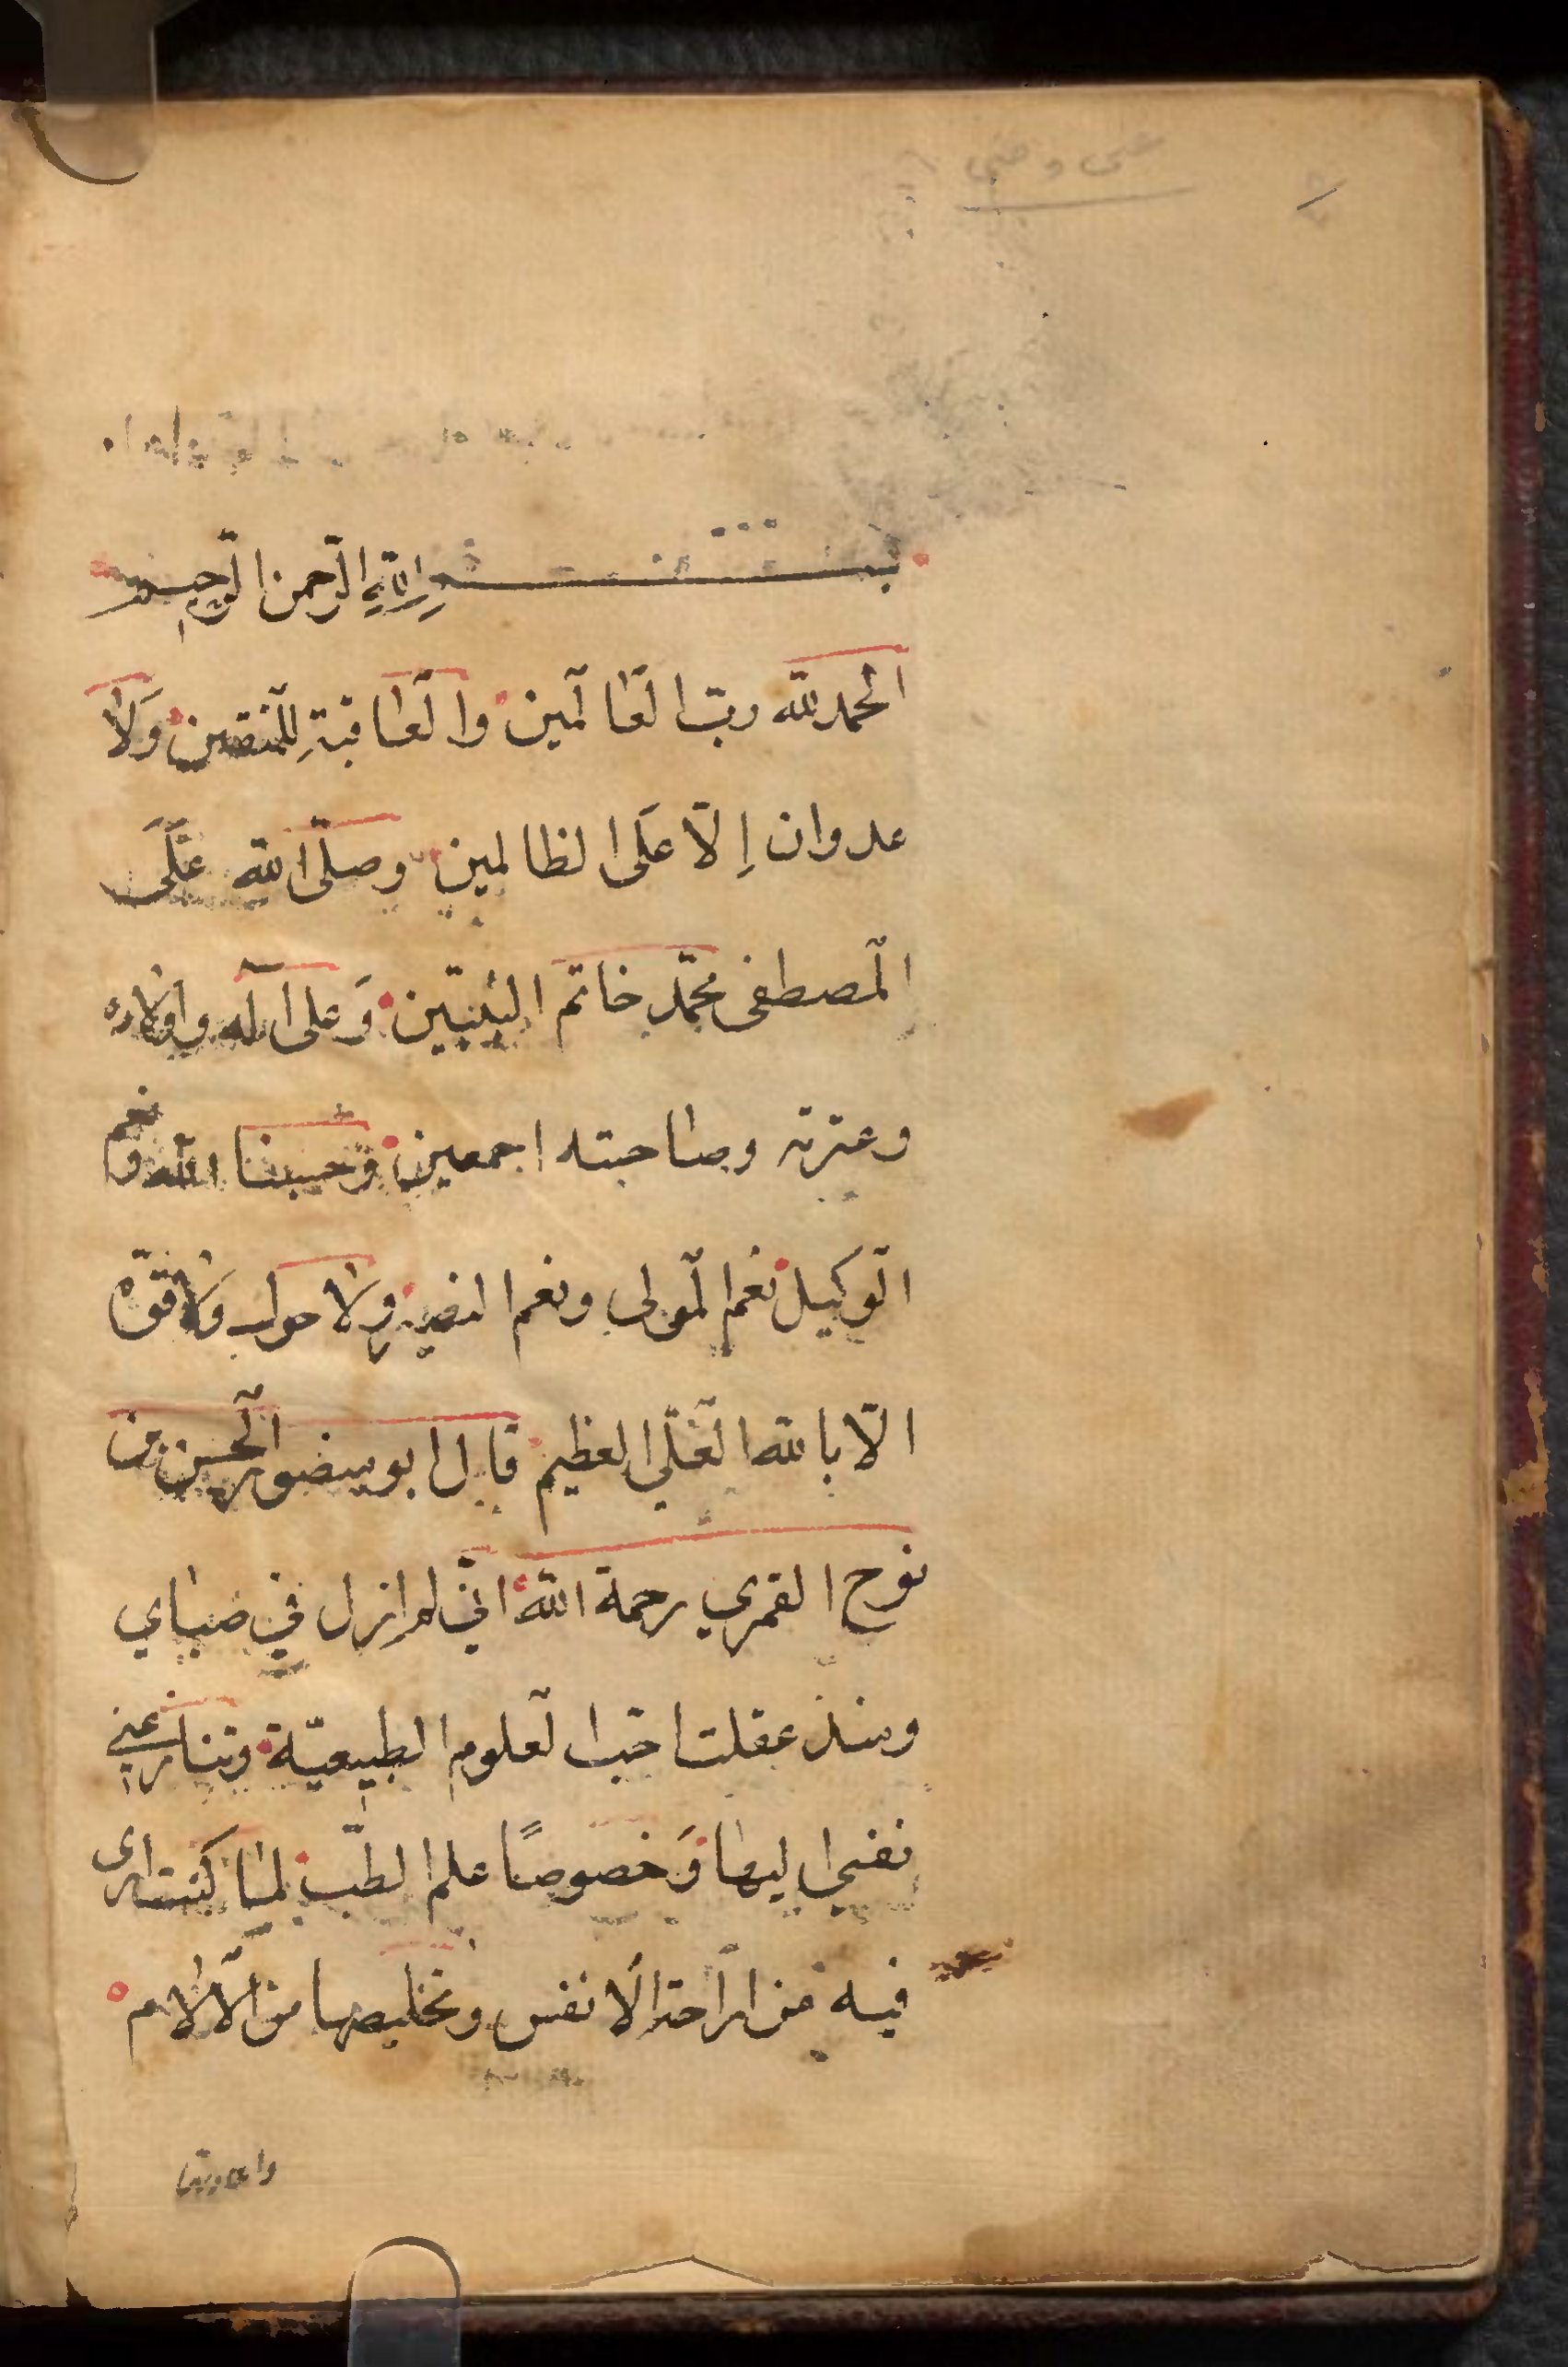 بسم الله الرحمن الرحيم
الحمد لله رب العالمين والعاقبة للمتقين ولا
عدوان إلا على الظالمين وصلى الله على
المصطفى محمد خاتم النبيين وعلى آله واولاده
وعترته وصاحبته اجمعين وحسبنا الله ونعم
الوكيل نعم المولى ونعم النصير ولا حول ولا قوة
الا بالله العلي العظيم قال ابو منصور الحسن بن
نوح القمري رحمة الله اني لم ازل في صباي
ومنذ عقلت احب العلوم الطبيعية وتنازعني
نفسي اليها وخصوصًا علم الطب لما كنت ارى
فيه من الراحة الانفس وتخليصها من الآلام